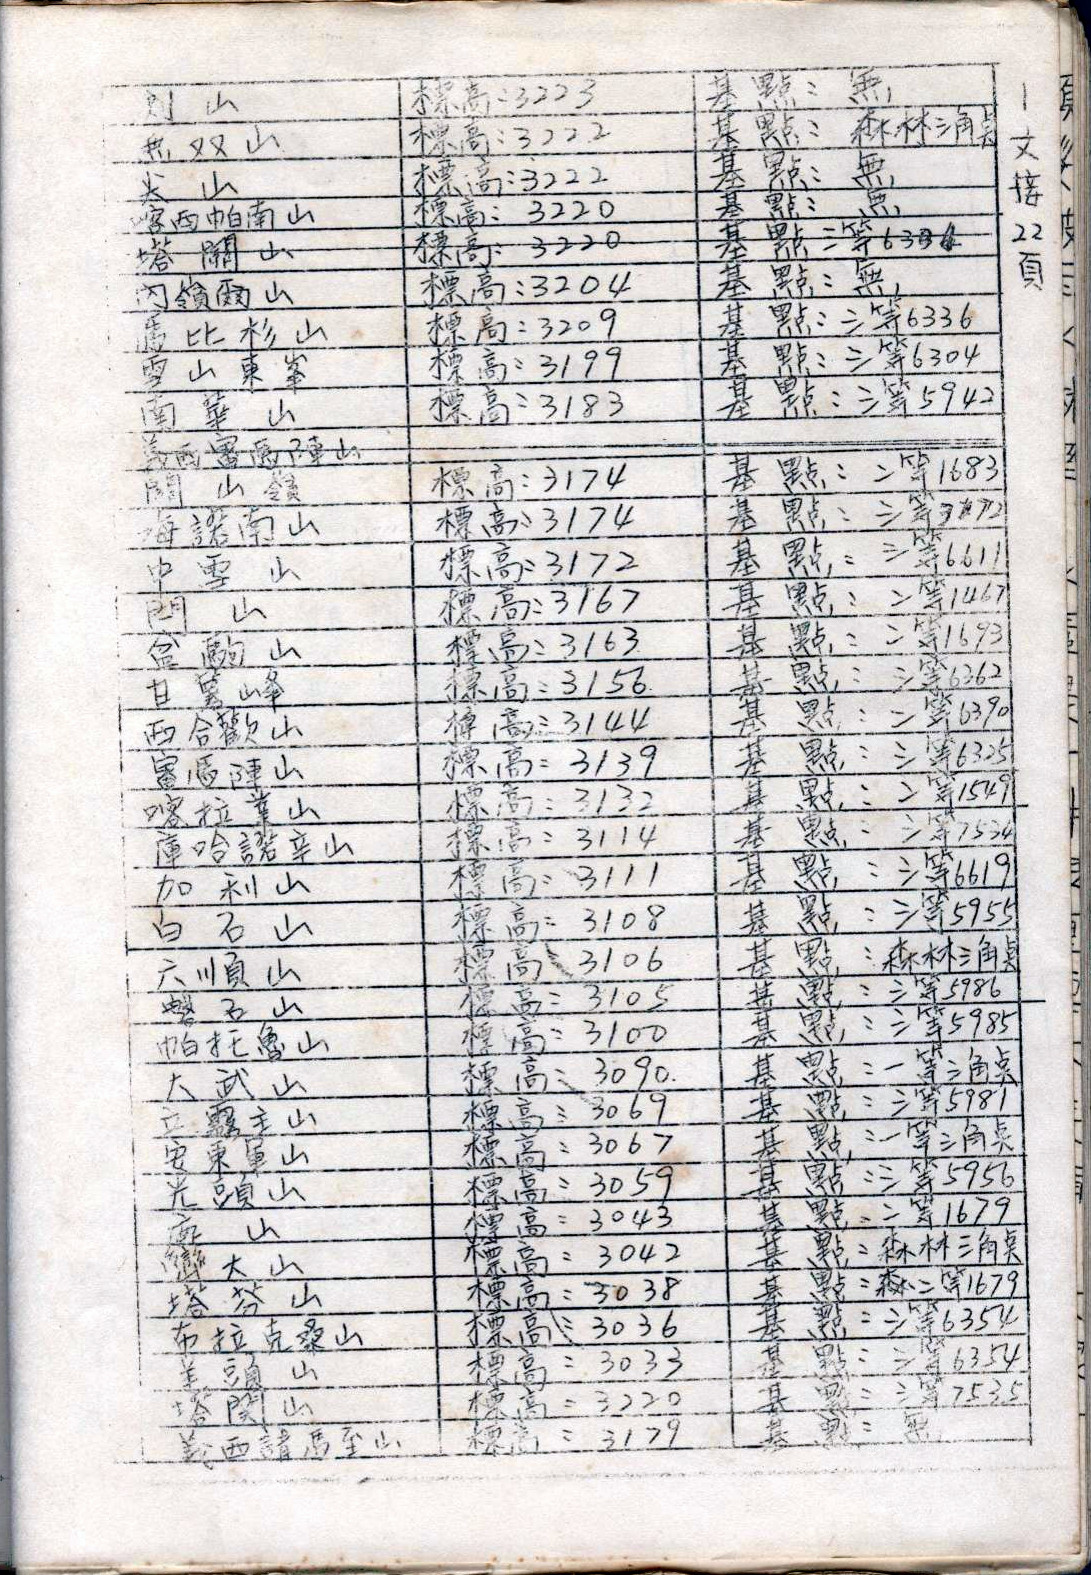 山 標高:3223 基點: 無
無双山 標高:3222 基點: 森林三角點
尖山 標高:3222 基點: 無
喀西帕南山 標高: 3220 基點: 無
塔關山 標高: 3220 基點 三等
內嶺爾山 標高:3204 基點: 無
馬比杉山 標高:3209 基點:三等6336
雪山東峯 標高:3199 基點:三等6304
南華山 標高:3183 基點:三等5942
義西審馬陣山
關山嶺 標高:3174 基點:二等1683
海諾南山 標高:3174 基點:三等
中雪山 標高:3172 基點:三等6611
閂山 標高:3167 基點:二等1467
盆駒山 標高:3163 基點:二等1693
甘薯峰 標高:3156 基點:三等6362
西合歡山 標高:3144 基點:三等6390
審馬陣山 標高:3139 基點:三等6325
喀拉業山 標高:3132 基點:二等1549
庫哈諾辛山 標高:3114 基點:三等7534
加利山 標高:3111 基點:三等6619
白石山 標高:3108 基點:三等5955
六順山 標高 3106 基點:森林三角點
石山 標高:3105 基點:三等5986
帕托魯山 標高:3100 基點:三等5985
大武山 標高:3090 基點:一等三角點
立霧主山 標高:3069 基點:三等5981
安東軍山 標高:3067 基點:一等三角點
光頭山 標高:3059 基點:三等5956
山 標高:3043 基點:二等1679
巒大山 標高:3042 基點:森林三角點
塔芬山 標高:3038 基點:森二等1679
布拉克桑山 標高:3036 基點:三等6354
羊頭山 標高:3033 基點:三等6354
塔關山 標高:3220 基點:三等7535
義西請馬至山 標高:3179 基點: 無
文接22頁